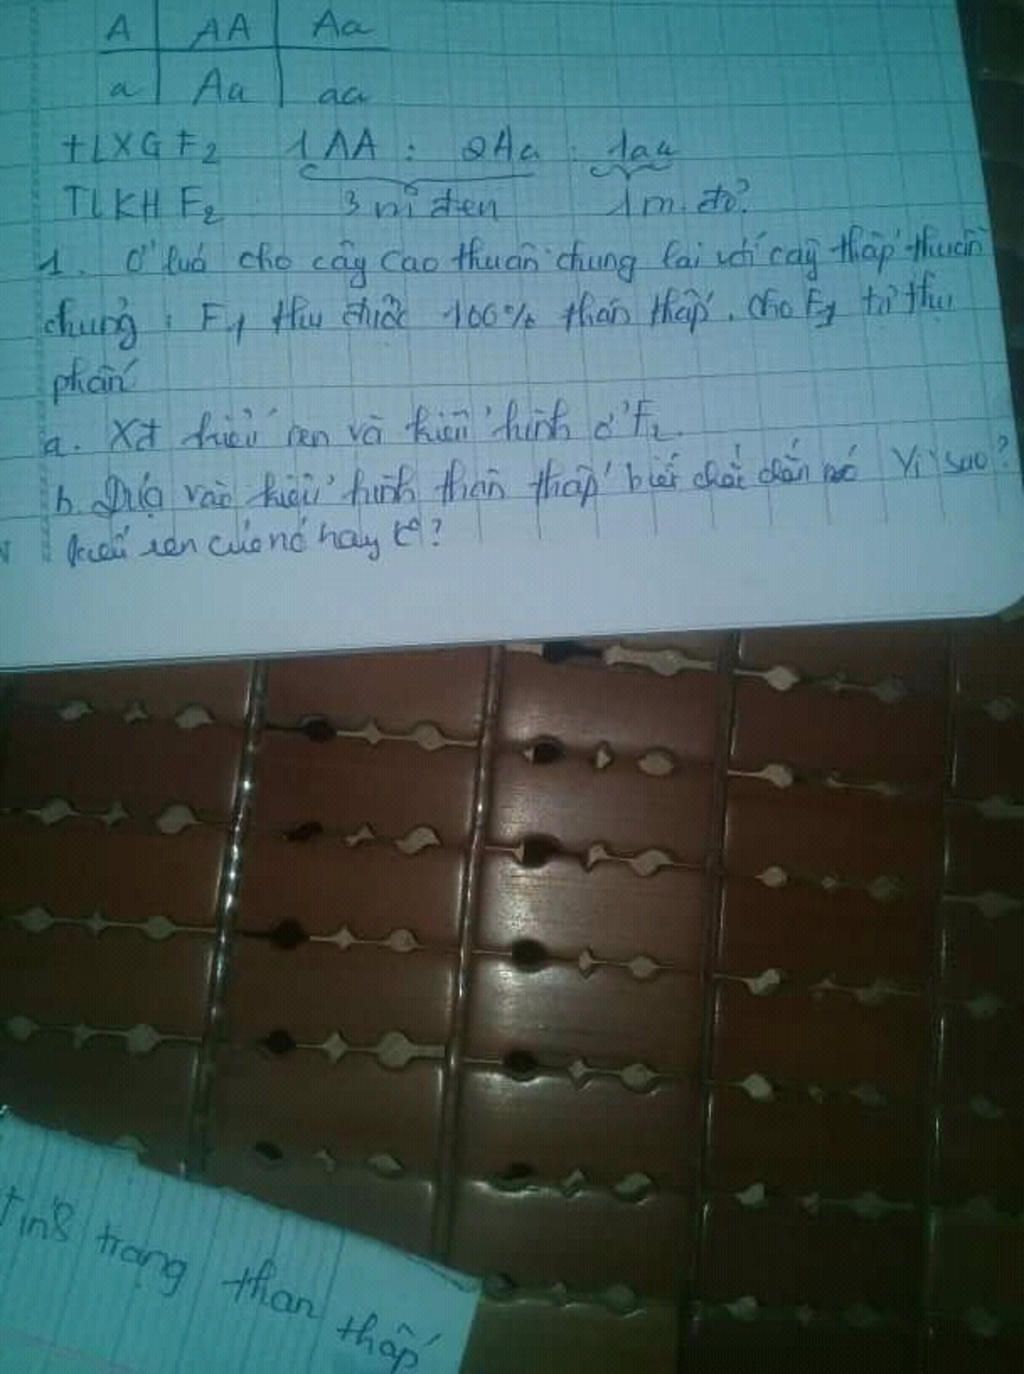 A AA Aa
a Aa aa
TLXG F2 1AA : 2Aa : 1aa
TLKH F2 3 m đen 1 m. đỏ
1. Ở lúa cho cây cao thuần chung lai với cây thấp thuần
chủng ; F1 thu được 100% thân thấp. cho F1 tự thụ
phấn
a. Xđ kiểu ren và kiểu hình ở F2.
b. Dựa vào kiểu hình thân thấp biết chắc chắn Vì sao?
kiểu ren của nó hay ?
trạng thân thấp